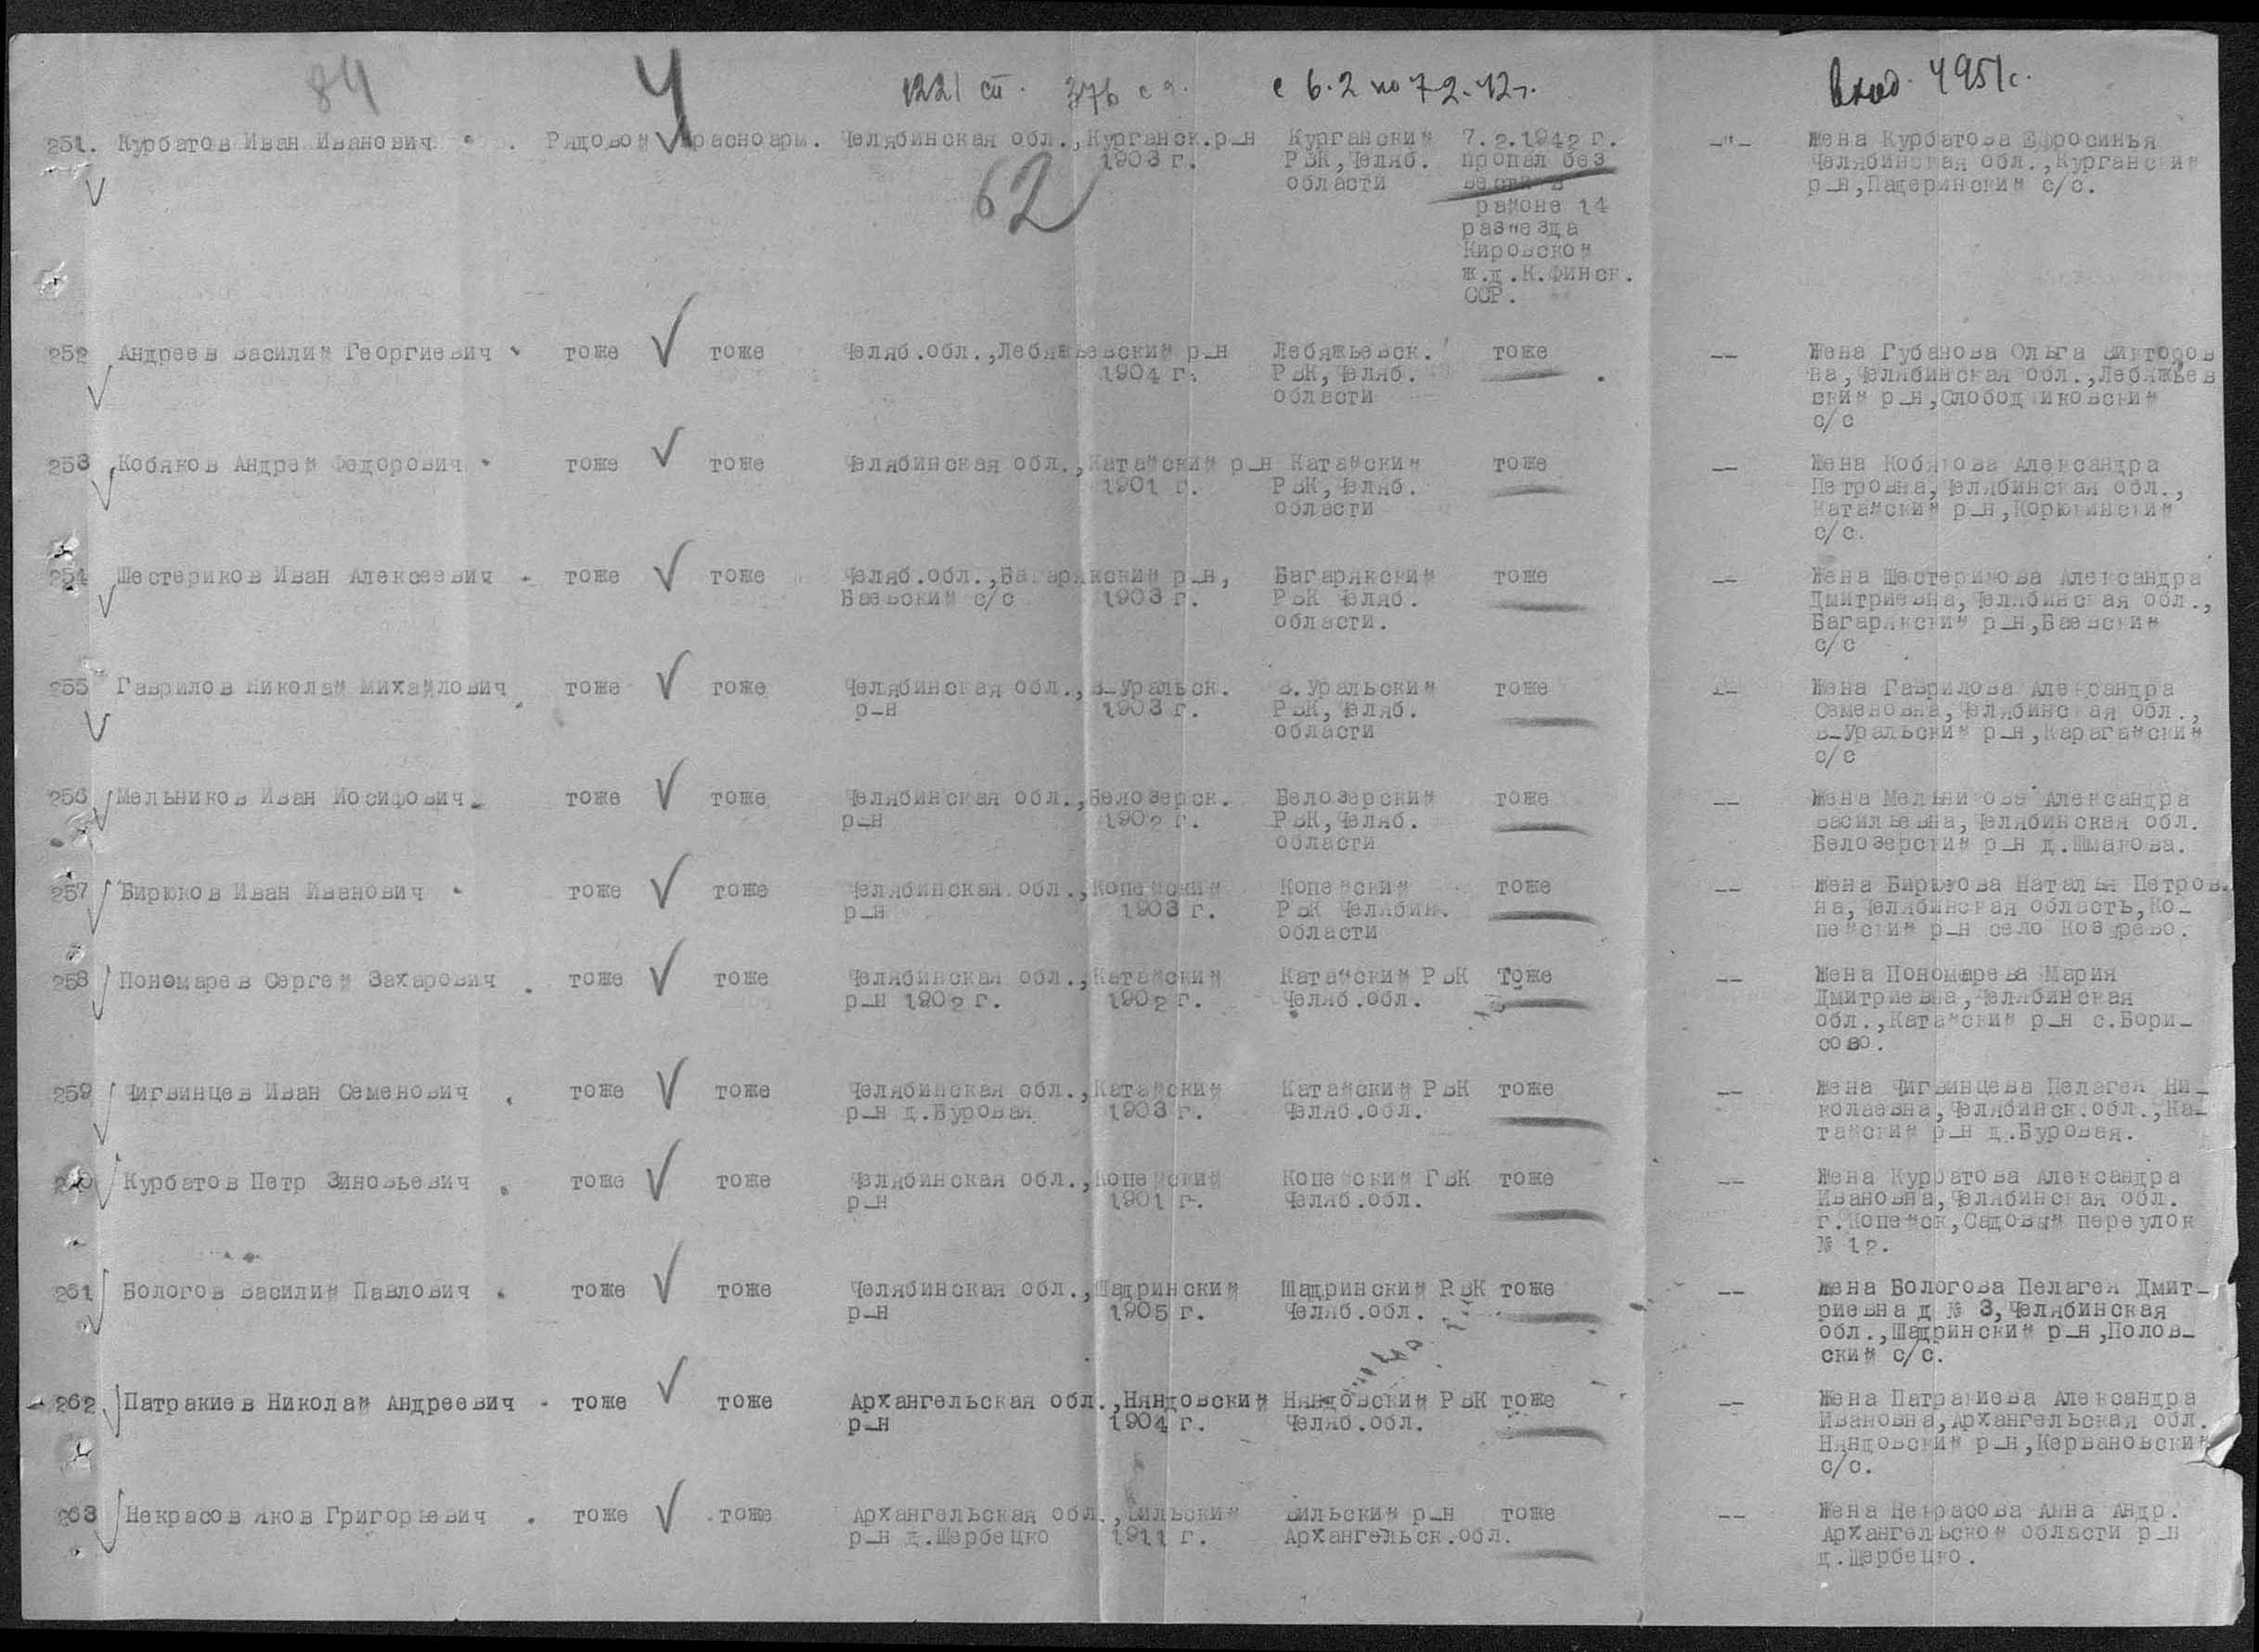 84 4 1221 сп. 376 с д. с 6.2 по 7-2-42г. вход. 4951с.
251. Курбатов Иван Иванович Рядовой Красноарм. Челябинская обл.,Курганск.р-н Курганский 7.2.1942 г. -"- Жена Курбатова Ефросинья
1903 г. РВК,Челяб. пропал без Челябинская обл.,Курганский
62 области вести в р-н,Падеринский с/с.
районе 14
разъезда
Кировской
ж.д.К.Финск.
ССР.
252 Андреев Василий Георгиевич тоже тоже Челяб.обл.,Лебяжьевский р-н Лебяжьевск. тоже -- Жена Губанова Ольга Викторов
1904 г. РВК,Челяб. на,Челябинская обл.,Лебяжьев
области ский р-н,Слободчиковский
с/с
253 Кобяков Андрей Федорович тоже тоже Челябинская обл.,Катайский р-н Катайский тоже -- Жена Кобякова Александра
1901 г. РВК,Челяб. Петровна,Челябинская обл.,
области Катайский р-н,Корюкинский
с/с.
254 Шестериков Иван Алексеевич тоже тоже Челяб.обл.,Багарякский р-н, Багарякский тоже -- Жена Шестерикова Александра
Баевский с/с 1903 г. РВК Челяб. Дмитриевна,Челябинская обл.,
области. Багарякский р-н,Баевский
с/с
255 Гаврилов Николай Михайлович тоже тоже Челябинская обл.,В-Уральск. В.Уральский тоже -- Жена Гаврилова Александра
р-н 1903 г. РВК,Челяб. Семеновна,Челябинская обл.,
области В-Уральский р-н,Карагайский
с/с
256 Мельников Иван Иосифович тоже тоже Челябинская обл.,Белозерск. Белозерский тоже -- Жена Мельникова Александра
р-н 1902 г. РВК,Челяб. Васильевна,Челябинская обл.
области Белозерский р-н д.Шмакова.
257 Бирюков Иван Иванович тоже тоже Челябинская обл.,Копейский Копейский тоже -- Жена Бирюкова Наталья Петров-
р-н 1903 г. РВК Челябин. на,Челябинская область,Ко-
области пейский р-н село Козырево.
258 Пономарев Сергей Захарович тоже тоже Челябинская обл.,Катайский Катайский РВК Тоже -- Жена Пономарева Мария
р-н 1902 г. 1902 г. Челяб.обл. Дмитриевна,Челябинская
обл.,Катайский р-н с.Бори-
сово.
259 Чигвинцев Иван Семенович тоже тоже Челябинская обл.,Катайский Катайский РВК тоже -- Жена Чигвинцева Пелагея Ни-
р-н д.Буровая 1903 г. Челяб.обл. колаевна,Челябинск.обл.,Ка-
тайский р-н д.Буровая.
260 Курбатов Петр Зиновьевич тоже тоже Челябинская обл.,Копейский Копейский ГВК тоже -- Жена Курбатова Александра
р-н 1901 г. Челяб.обл. Ивановна,Челябинская обл.
г.Копейск,Садовый переулок
№ 12.
261 Бологов Василий Павлович тоже тоже Челябинская обл.,Шадринский Шадринский РВК тоже -- Жена Бологова Пелагея Дмит-
р-н 1905 г. Челяб.обл. риевна д № 3,Челябинская
обл.,Шадринский р-н,Полов-
ский с/с.
262 Патракиев Николай Андреевич тоже тоже Архангельская обл.,Няндовский Няндовский РВК тоже -- Жена Патракиева Александра
р-н 1904 г. Челяб.обл. Ивановна,Архангельская обл.
Няндовский р-н,Кервановский
с/с.
263 Некрасов Яков Григорьевич тоже тоже Архангельская обл.,Вильский Вильский р-н тоже -- Жена Некрасова Анна Андр.
р-н д.Шербецко 1911 г. Архангельск.обл. Архангельской области р-н
д.Шербецко.